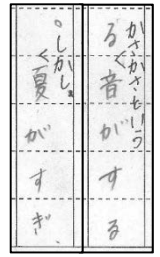 かさかさという
る音がする
しかし、
。夏がすぎ、